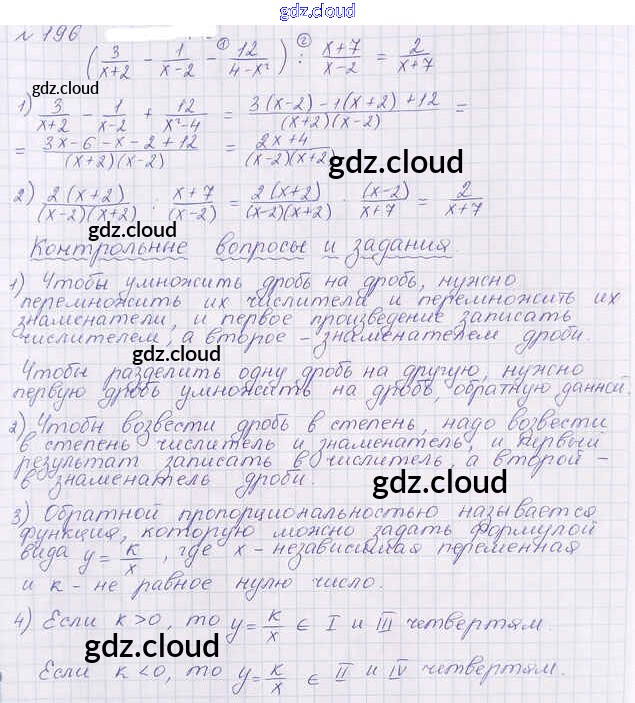 gdz.cloud
№ 196
(3/(x+2) - 1/(x-2) - 12/(4-x²)) : (x+7)/(x-2) = 2/(x+7)
① ②
gdz.cloud
1) 3/(x+2) - 1/(x-2) + 12/(x²-4) = (3(x-2)-1(x+2)+12)/((x+2)(x-2)) =
= (3x-6-x-2+12)/((x+2)(x-2)) = (2x+4)/((x-2)(x+2))
gdz.cloud
2) 2(x+2)/((x-2)(x+2)) : (x+7)/(x-2) = 2(x+2)/((x-2)(x+2)) · (x-2)/(x+7) = 2/(x+7)
gdz.cloud
Контрольные вопросы и задания
1) Чтобы умножить дробь на дробь, нужно
перемножить их числители и перемножить их
знаменатели, и первое произведение записать
числителем, а второе - знаменателем дроби.
gdz.cloud
Чтобы разделить одну дробь на другую, нужно
первую дробь умножить на дробь, обратную данной.
2) Чтобы возвести дробь в степень, надо возвести
в степень числитель и знаменатель, и первый
результат записать в числитель, а второй -
в знаменатель дроби.
gdz.cloud
gdz.cloud
3) Обратной пропорциональностью называется
функция, которую можно задать формулой
вида y = k/x, где x - независимая переменная
и k - не равное нулю число.
4) Если k>0, то y = k/x ∈ I и III четвертям.
gdz.cloud
gdz.cloud
Если k<0, то y = k/x ∈ II и IV четвертям.